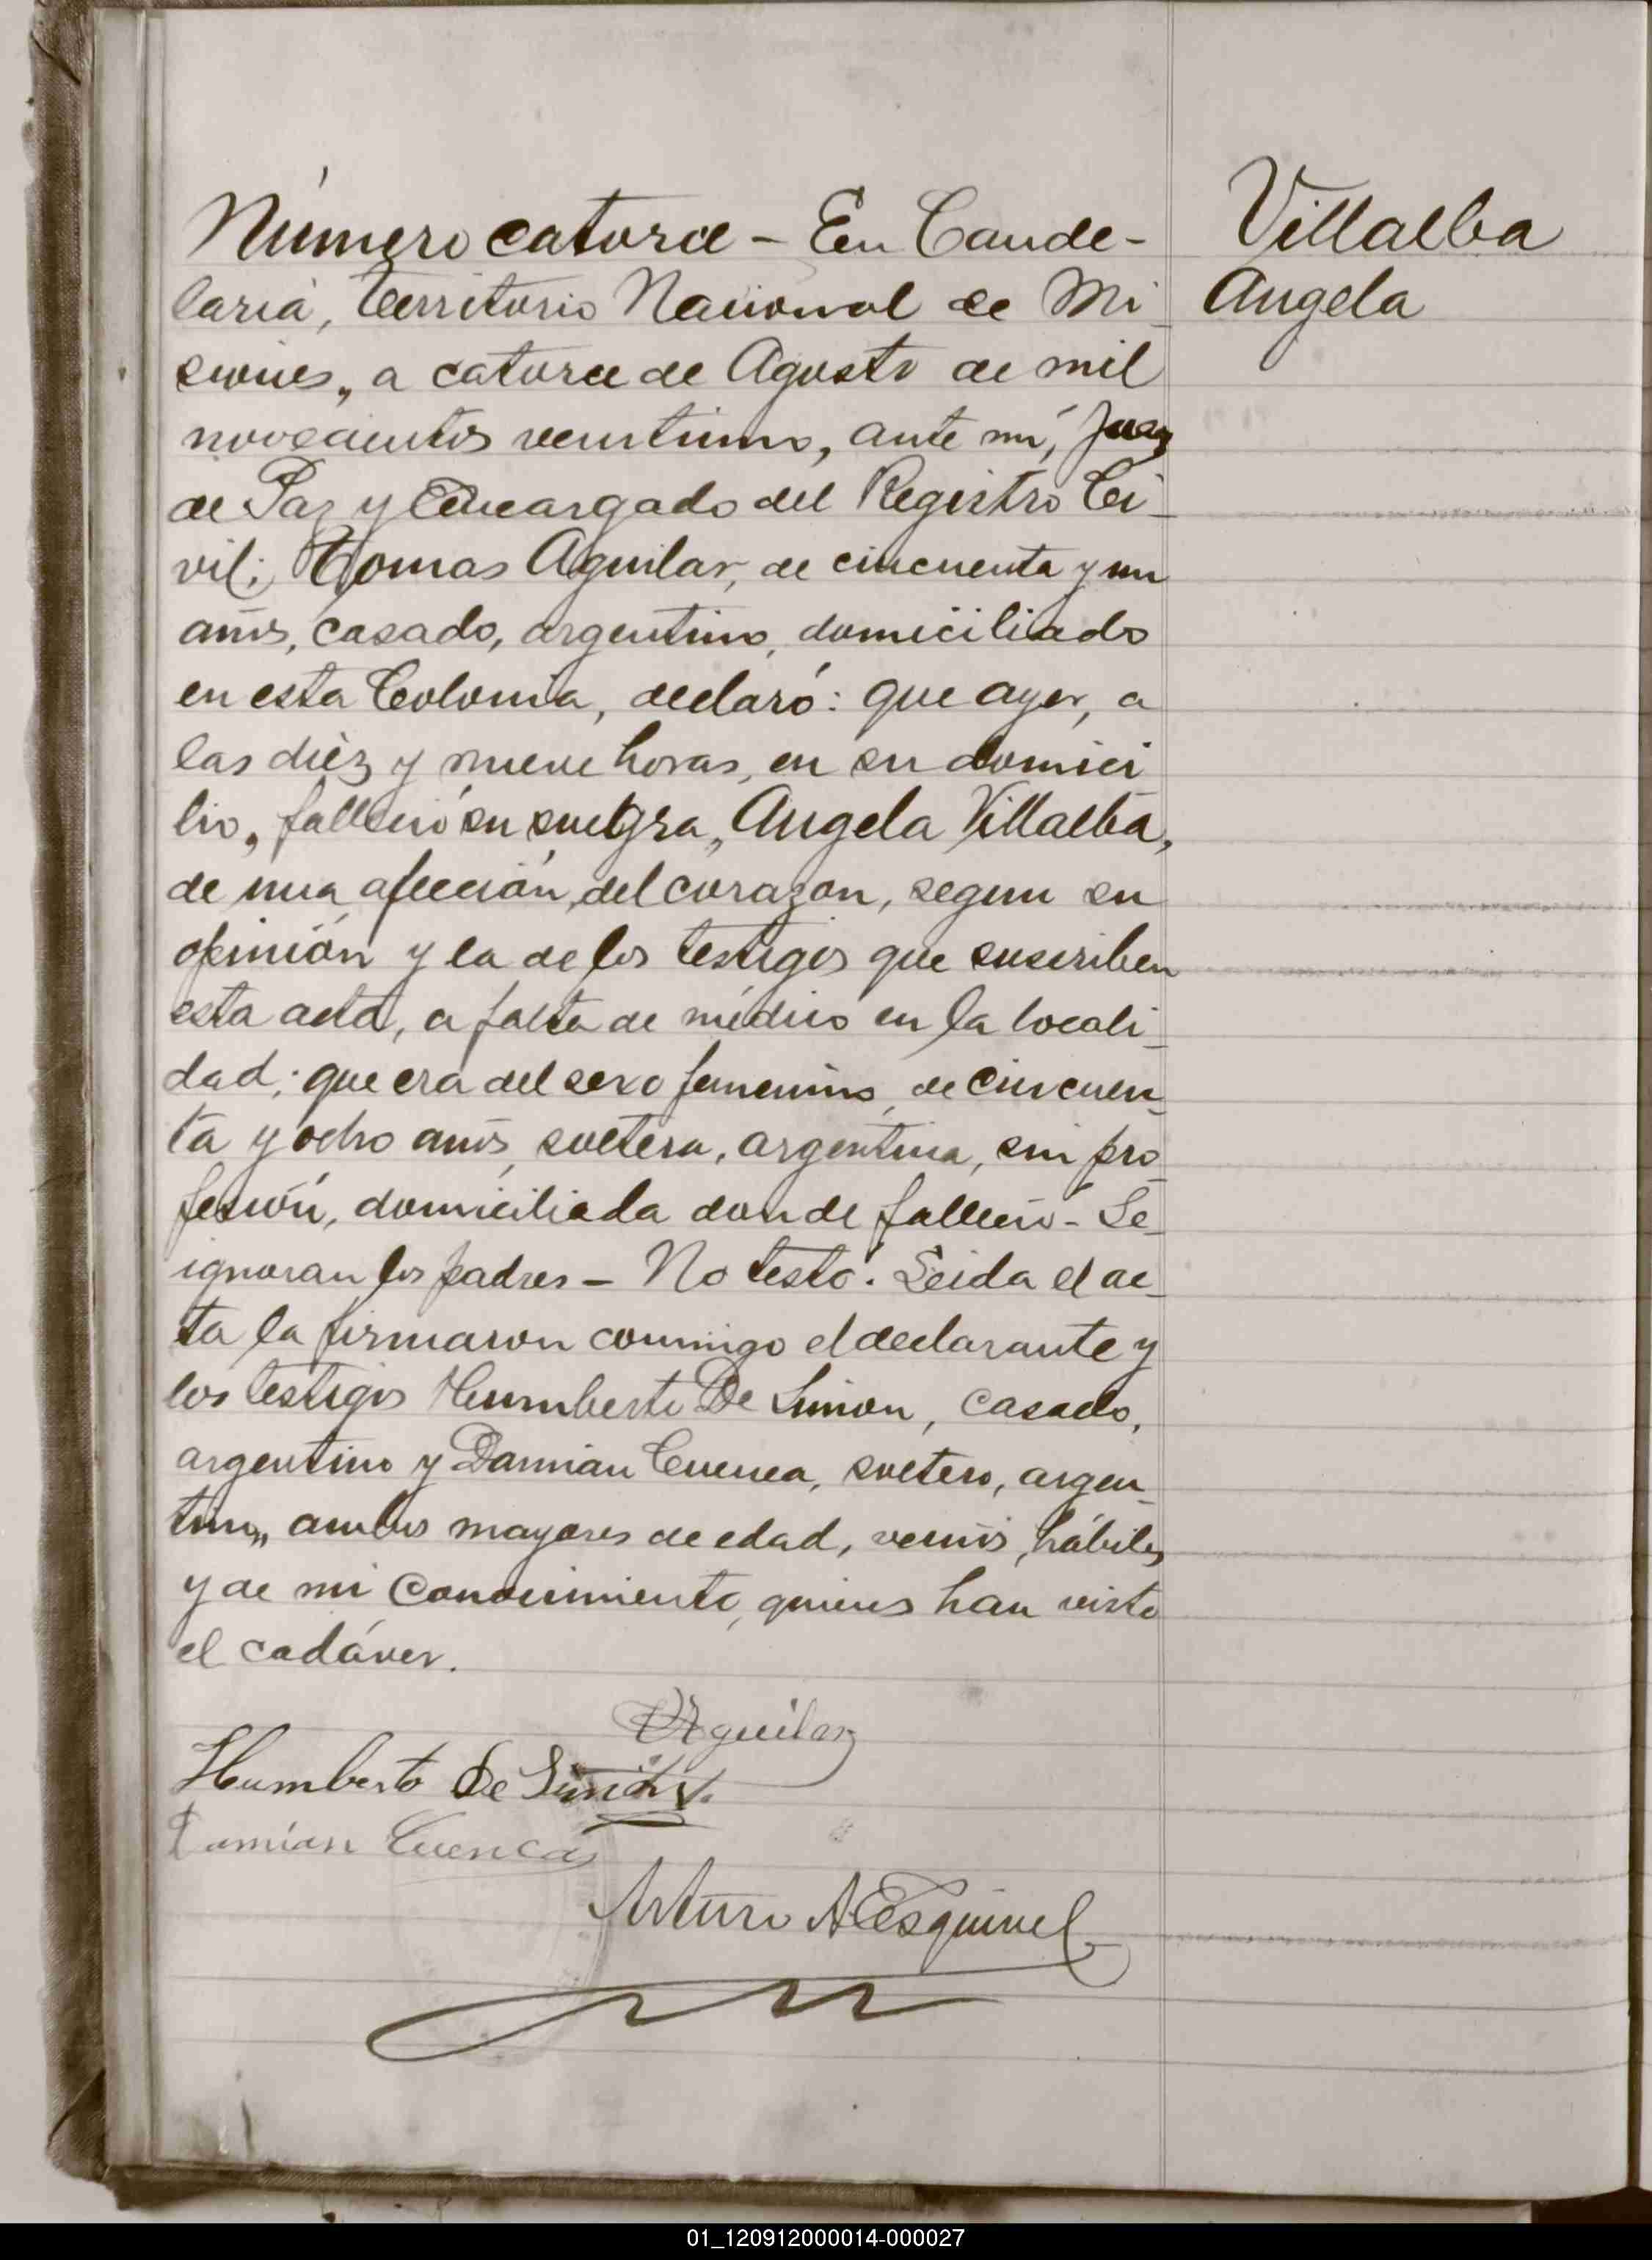 Número catorce - En Cande-
laria, Territorio Nacional de Mi_
siones, a catorce de Agosto de mil
novecientos veintiuno, ante mí, Juez
de Paz y Encargado del Registro Ci_
vil; Tomas Aguilar, de cincuenta y un
años, casado, argentino, domiciliado
en esta Colonia, declaró: que ayer, a
las diéz y nueve horas, en su domici
lio, falleció su suegra, Angela Villalba,
de una afección del corazon, segun su
opinión y la de los testigos que suscriben
esta acta, a falta de médico en la locali_
dad; que era del sexo femenino, de cincuen_
ta y ocho años, soltera, argentina, sin pro_
fesión, domiciliada donde falleció - Se
ignoran los padres - No testó. Leida el ac_
ta la firmaron conmigo el declarante y
los testigos Humberto De Simon, casado,
argentino y Damián Cuenca, soltero, argen_
tino, ambos mayores de edad, vecinos, hábiles
y de mi conocimiento, quienes han visto
el cadáver.
TAguilar
Humberto De Simón
Damián Cuenca
Arturo A. Esquivel
Villalba
Angela
01_120912000014-000027